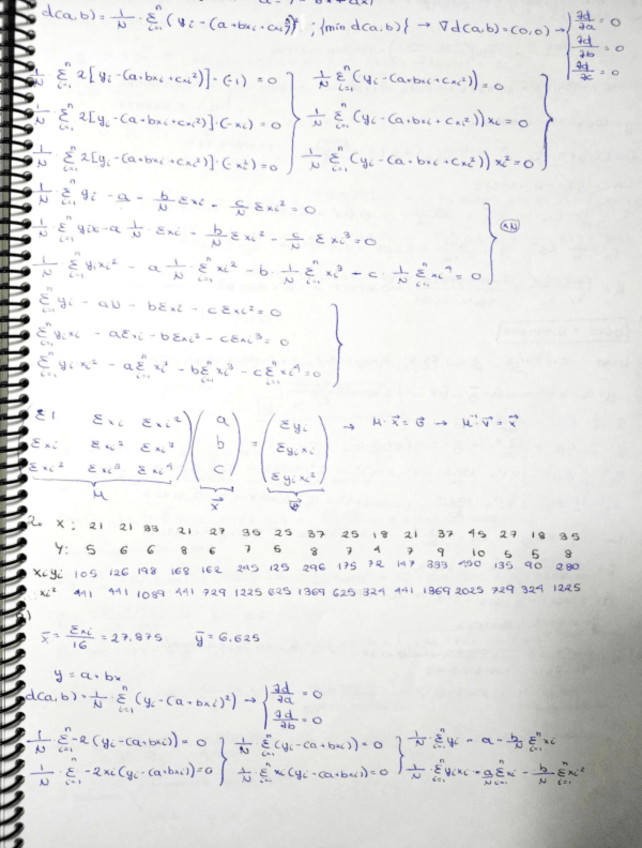 d(a,b) = 1/N · Σ_{i=1}^{n} (yi - (a+bxi+cxi²))² ; {min d(a,b)} → ∇d(a,b) = (0,0) → { ∂d/∂a = 0
∂d/∂b = 0
∂d/∂c = 0
1/N Σ_{i=1}^{n} 2[yi - (a+bxi+cxi²)] · (-1) = 0 } 1/N Σ_{i=1}^{n} (yi - (a+bxi+cxi²)) = 0 }
1/N · Σ_{i=1}^{n} 2[yi - (a+bxi+cxi²)] · (-xi) = 0 } 1/N Σ_{i=1}^{n} (yi - (a+bxi+cxi²)) xi = 0 }
1/N · Σ_{i=1}^{n} 2[yi - (a+bxi+cxi²)] · (-xi²) = 0 } 1/N Σ_{i=1}^{n} (yi - (a+bxi+cxi²)) xi² = 0 }
1/N · Σ_{i=1}^{n} yi - a - b/N Σxi - c/N Σxi² = 0
1/N · Σ_{i=1}^{n} yix - a 1/N · Σxi - b/N Σxi² - c/N · Σxi³ = 0 } (xN)
1/N · Σ_{i=1}^{n} yixi² - a 1/N · Σ_{i=1}^{n} xi² - b · 1/N Σ_{i=1}^{n} xi³ - c · 1/N Σ_{i=1}^{n} xi⁴ = 0
Σ_{i=1}^{n} yi - aN - bΣxi - cΣxi² = 0
Σ_{i=1}^{n} yixi - aΣxi - bΣxi² - cΣxi³ = 0 }
Σ_{i=1}^{n} yi xi² - aΣ_{i=1}^{n} xi² - bΣ_{i=1}^{n} xi³ - cΣ_{i=1}^{n} xi⁴ = 0
Σ1 Σxi Σxi² ( a ) ( Σyi ) → M·x⃗ = v⃗ → M⁻¹·v⃗ = x⃗
Σxi Σxi² Σxi³ ( b ) = ( Σyixi )
Σxi² Σxi³ Σxi⁴ ( c ) ( Σyixi² )
M x⃗ v⃗
2. X: 21 21 33 21 27 35 25 37 25 18 21 37 45 27 18 35
Y: 5 6 6 8 6 7 5 8 7 4 7 9 10 5 5 8
xiyi 105 126 198 168 162 245 125 296 175 72 147 333 450 135 90 280
xi² 441 441 1089 441 729 1225 625 1369 625 324 441 1369 2025 729 324 1225
x̄ = Σxi/16 = 27.875 ȳ = 6.625
y = a+bx
d(a,b) = 1/N · Σ_{i=1}^{n} (yi - (a+bxi)²) → { ∂d/∂a = 0
∂d/∂b = 0
1/N · Σ_{i=1}^{n} -2(yi - (a+bxi)) = 0 } 1/N · Σ_{i=1}^{n} (yi - (a+bxi)) = 0 } 1/N · Σ_{i=1}^{n} yi - a - b/N Σ_{i=1}^{n} xi
1/N · Σ_{i=1}^{n} -2xi(yi - (a+bxi)) = 0 } 1/N · Σ_{i=1}^{n} xi(yi - (a+bxi)) = 0 } 1/N · Σ_{i=1}^{n} yixi - a/N Σ_{i=1}^{n} xi - b/N Σ_{i=1}^{n} xi²